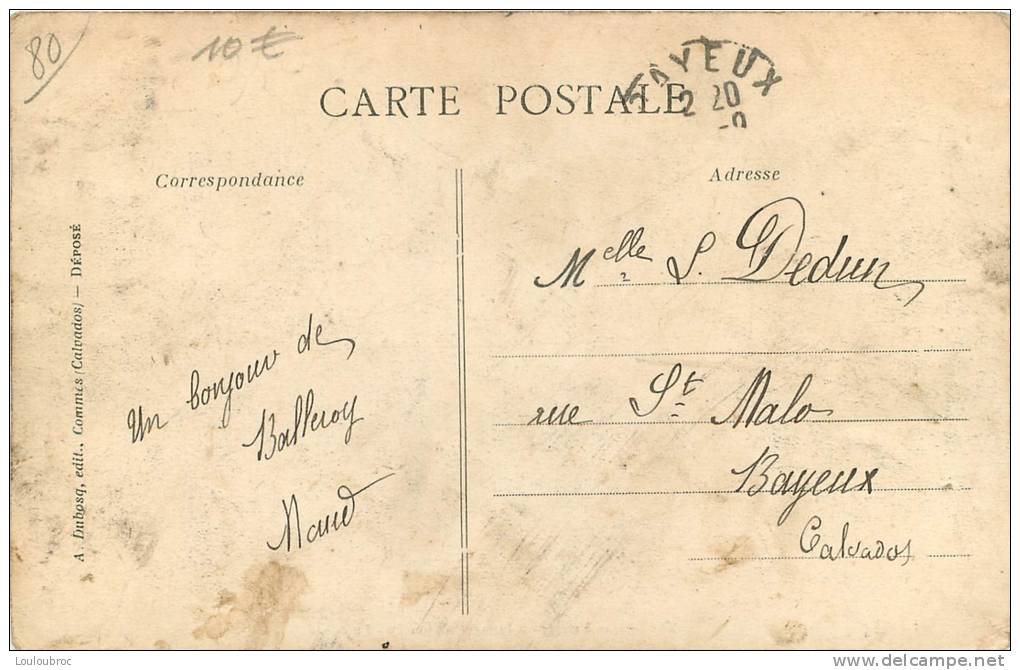 80
10€
BAYEUX
2 20
CARTE POSTALE
Correspondance
Adresse
A. Dubosq, edit., Commes (Calvados) — DÉPOSÉ
Un bonjour de
Balleroy
Maud
Melle L. Dedun
rue St Malo
Bayeux
Calvados
Louloubroc
www.delcampe.net